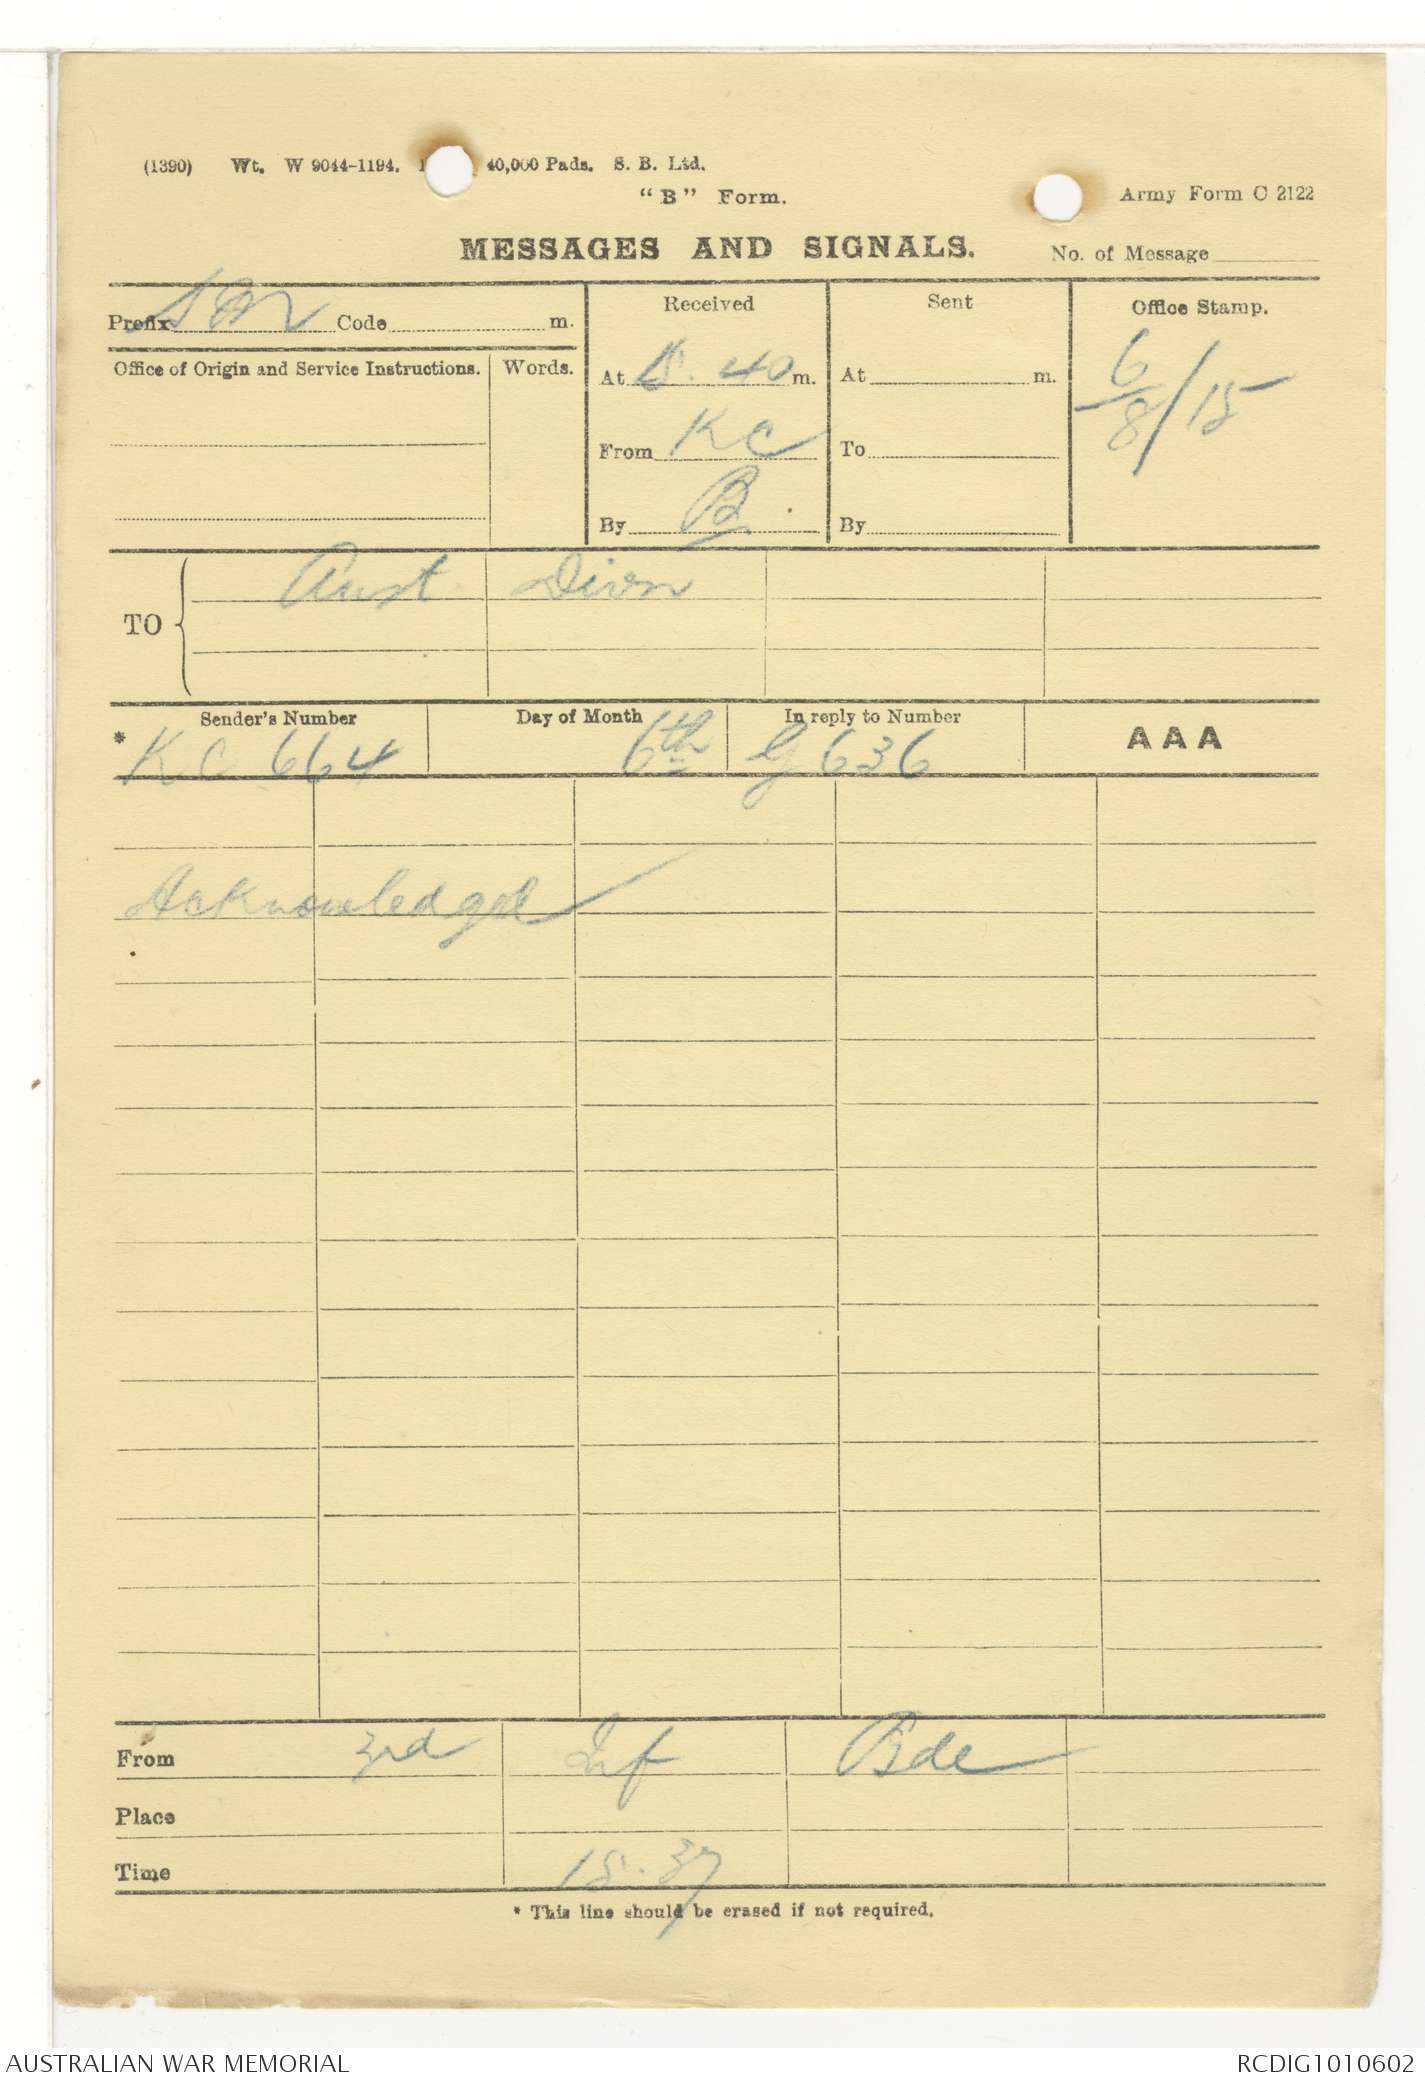 (1390) Wt. W 9044-1194. 40,000 Pads. S. B. Ltd.
"B" Form.
Army Form C 2122
MESSAGES AND SIGNALS.
No. of Message
Prefix SM Code m.
Received
Sent
Office Stamp.
Office of Origin and Service Instructions.
Words.
At 40 m.
At m.
6/8/15
From KC
To
By B.
By
TO
Aust Divn
Sender's Number
Day of Month
In reply to Number
AAA
* KC 664
6th
G 636
Acknowledged
From 3rd Inf Bde
Place
Time 18.37
* This line should be erased if not required.
AUSTRALIAN WAR MEMORIAL
RCDIG1010602